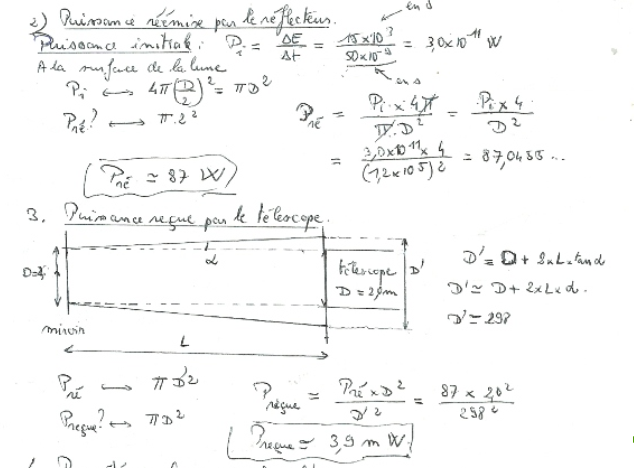 2) Puissance réémise par le réflecteur.
en J
Puissance initiale : Pi = ΔE/Δt = 15×10³/50×10⁻⁹ = 3,0×10⁻¹¹ W
en s
A la surface de la lune
Pi ⟷ 4π(D/2)² = πD²
Pré? ⟷ π.2²
Pré = Pi × 4π/π.D² = Pi × 4/D²
= 3,0×10¹¹ × 4/(1,2×10⁵)² = 87,0455...
Pré ≃ 87 W
3. Puissance reçue par le télescope.
α
D=2
télescope
D = 2,0m
D'
miroir
L
D' = D + 2×L×tanα
D' ≃ D + 2×L×α.
D' ≃ 298
Pré ⟷ πD'²
Preçue? ⟷ πD²
Preçue = Pré × D²/D'² = 87 × 2,0²/298²
Preçue ≃ 3,9 mW.